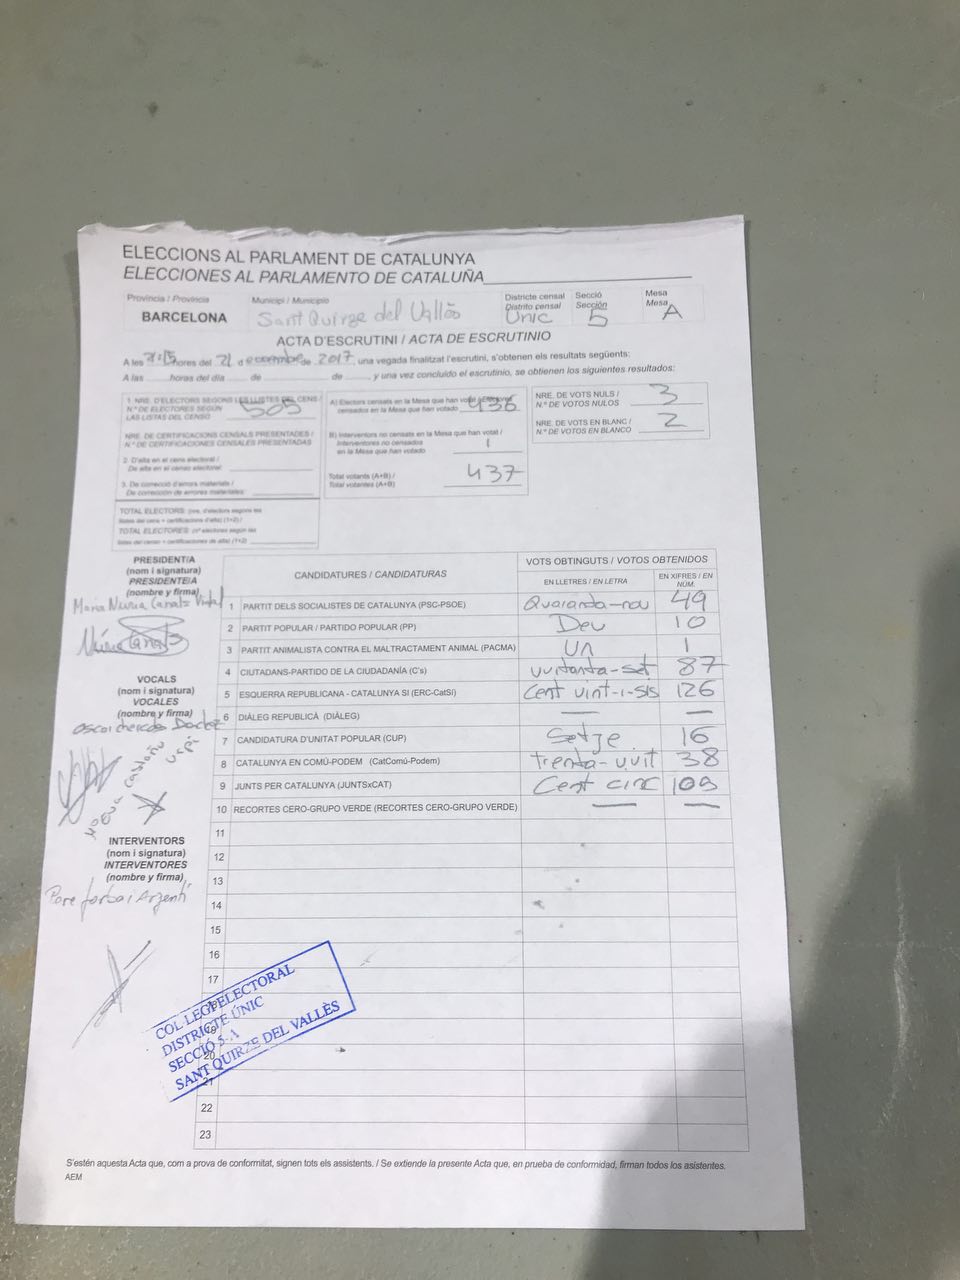 ELECCIONS AL PARLAMENT DE CATALUNYA
ELECCIONES AL PARLAMENTO DE CATALUÑA
Província / Provincia
BARCELONA
Municipi / Municipio
Sant Quirze del Vallès
Districte censal
Distrito censal
Únic
Secció
Sección
5
Mesa
Mesa
A
ACTA D'ESCRUTINI / ACTA DE ESCRUTINIO
A les 21:15 hores del 21 de desembre de 2017, una vegada finalitzat l'escrutini, s'obtenen els resultats següents:
A las horas del día de de y una vez concluido el escrutinio, se obtienen los siguientes resultados:
1. NRE. D'ELECTORS SEGONS LES LLISTES DEL CENS /
N.º DE ELECTORES SEGÚN
LAS LISTAS DEL CENSO
505
NRE. DE CERTIFICACIONS CENSALS PRESENTADES /
N.º DE CERTIFICACIONES CENSALES PRESENTADAS
2. D'alta en el cens electoral /
De alta en el censo electoral:
3. De correcció d'errors materials /
De corrección de errores materiales:
TOTAL ELECTORS: (nre. d'electors segons les
llistes del cens + certificacions d'alta) (1+2) /
TOTAL ELECTORES: (nº electores según las
listas del censo + certificaciones de alta) (1+2)
A) Electors censats en la Mesa que han votat / Electores
censados en la Mesa que han votado
436
B) Interventors no censats en la Mesa que han votat /
Interventores no censados
en la Mesa que han votado
1
Total votants (A+B) /
Total votantes (A+B)
437
NRE. DE VOTS NULS /
N.º DE VOTOS NULOS
3
NRE. DE VOTS EN BLANC /
N.º DE VOTOS EN BLANCO
2
PRESIDENT/A
(nom i signatura)
PRESIDENTE/A
(nombre y firma)
Maria Núria Canals Vidal
VOCALS
(nom i signatura)
VOCALES
(nombre y firma)
INTERVENTORS
(nom i signatura)
INTERVENTORES
(nombre y firma)
CANDIDATURES / CANDIDATURAS
VOTS OBTINGUTS / VOTOS OBTENIDOS
EN LLETRES / EN LETRA
EN XIFRES / EN NÚM.
1 PARTIT DELS SOCIALISTES DE CATALUNYA (PSC-PSOE) Quaranta-nou 49
2 PARTIT POPULAR / PARTIDO POPULAR (PP) Deu 10
3 PARTIT ANIMALISTA CONTRA EL MALTRACTAMENT ANIMAL (PACMA) Un 1
4 CIUTADANS-PARTIDO DE LA CIUDADANÍA (C's) vuitanta-set 87
5 ESQUERRA REPUBLICANA - CATALUNYA SÍ (ERC-CatSí) Cent vint-i-sis 126
6 DIÀLEG REPUBLICÀ (DIÀLEG) — —
7 CANDIDATURA D'UNITAT POPULAR (CUP) Setze 16
8 CATALUNYA EN COMÚ-PODEM (CatComú-Podem) trenta-vuit 38
9 JUNTS PER CATALUNYA (JUNTSxCAT) Cent cinc 105
10 RECORTES CERO-GRUPO VERDE (RECORTES CERO-GRUPO VERDE) — —
11
12
13
14
15
16
17
18
19
20
21
22
23
COL·LEGI ELECTORAL
DISTRICTE ÚNIC
SECCIÓ 5-A
SANT QUIRZE DEL VALLÈS
S'estén aquesta Acta que, com a prova de conformitat, signen tots els assistents. / Se extiende la presente Acta que, en prueba de conformidad, firman todos los asistentes.
AEM